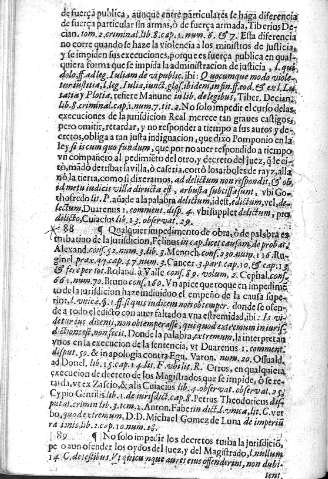 de fuerça publica, aunque entre particulares se haga diferencia
de fuerça particular sin armas, ò de fuerça armada, Tiberius De-
cian. tom. 2. criminal. lib. 8. cap. 1. num. 6. & 7. Esta diferencia
no corre quando se haze la violencia a los ministros de justicia,
y se impiden sus execuciones, porque es fuerça publica en qual-
quiera forma que se impida la administracion de justicia, l. qui
dolo, ff. ad leg. Iuliam de vi publ. ibi: Quocumque modo
refiere Manune lib. de legibus, Tiber. Decian.
lib. 8. criminal. cap. 1. num. 7. tit. 2. No solo impedir el curso de las
execuciones de la jurisdicion Real merece tan graues castigos,
pero omitir, retardar, y no responder a tiempo a sus autos y de-
cretos, obliga a tan justa indignacion, que dixo Pomponio en la
ley si locum quo fundum, que por no auer respondido a tiempo
vn compañero al pedimiento del otro, y decreto del juez, q̃ le ci-
tò, mãdò derribar la villa, ò caseria, cortò los arboles de rayz, allà-
nò la tierra, como si dixeramos, ad delictum non respondit, & ob
id metu iudicis villa directa est, arbusta subcissa sunt, vbi Go-
thofredo lit. P. añade a la palabra delictum, idest, dictum, vel, de-
lectum, Duarenus 1. comment. disp. 4. vbi supplet delictum, pro,
dilicto, Cuiacius lib. 13. obser. 29.
88 ¶ Qualquier impedimento de obra, ò de palabra es-
tribatiuo de la jurisdicion, Felinus in cap.
Alexand. cons. 52. num. 3. lib. 3. Menoch. cons. 30. num. 126. Ru-
num. 3. Cancer. 3. part. cap. 10. & cap. 13
& ferè per tot. Roland. à Valle cons. 89. volum. 2. Cephal. cons.
66. num. 70. Bruno cons. 160. Vn apice que toque en impedimẽ-
to de la jurisdicion haze indiuiduo el empeño de la causa supe-
rior, l. vnica, §. 1. ff. si quis ius dicenti non obtemper. donde se ofen-
de a todo el edicto con auer faltado a vna estremidad, ibi: Is vi-
detur ius dicenti, non obtemperasse, qui quod extremum in iuris-
dictione est, non fecit. Donde la palabra, extremum, la interpretan
vnos en la execucion de la sentencia, vt Duarenus 1. comment.
disput. 52. & in apologia contra Egu. Varon. num. 20. Osuald.
ad Donel. lib. 15. cap. 14. lit. F. vbi lit. R. Otros, en qualquiera
execucion de decreto de los Magistrados que se impide, ò se re-
tarda, vt ex Zasio, & alijs Cuiacius lib. 4. obseruat. obseruat. 25.
Cypio Gentilis lib. 1. de iurisdict. cap. 8. Petrus Theodoricus dis-
putat. crimin. lib. 3. tom. 2. Anton. Faber in dict. l. vnica, lit. C. ver-
bo, quod extremum. D. D. Michael Gomez de Luna de imperiu
num. 16.
89 ¶ No solo impedir los decretos turba la jurisdicio,
pero aun ofender los oydos del juez, y del Magistrado, l. nullum
14. C. de testibus. Vt qui cumque aures eius offenderint, non dubi-
tent.